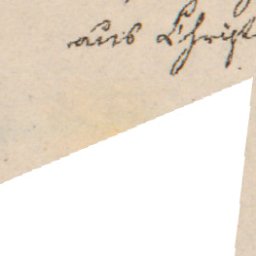 aus Christ